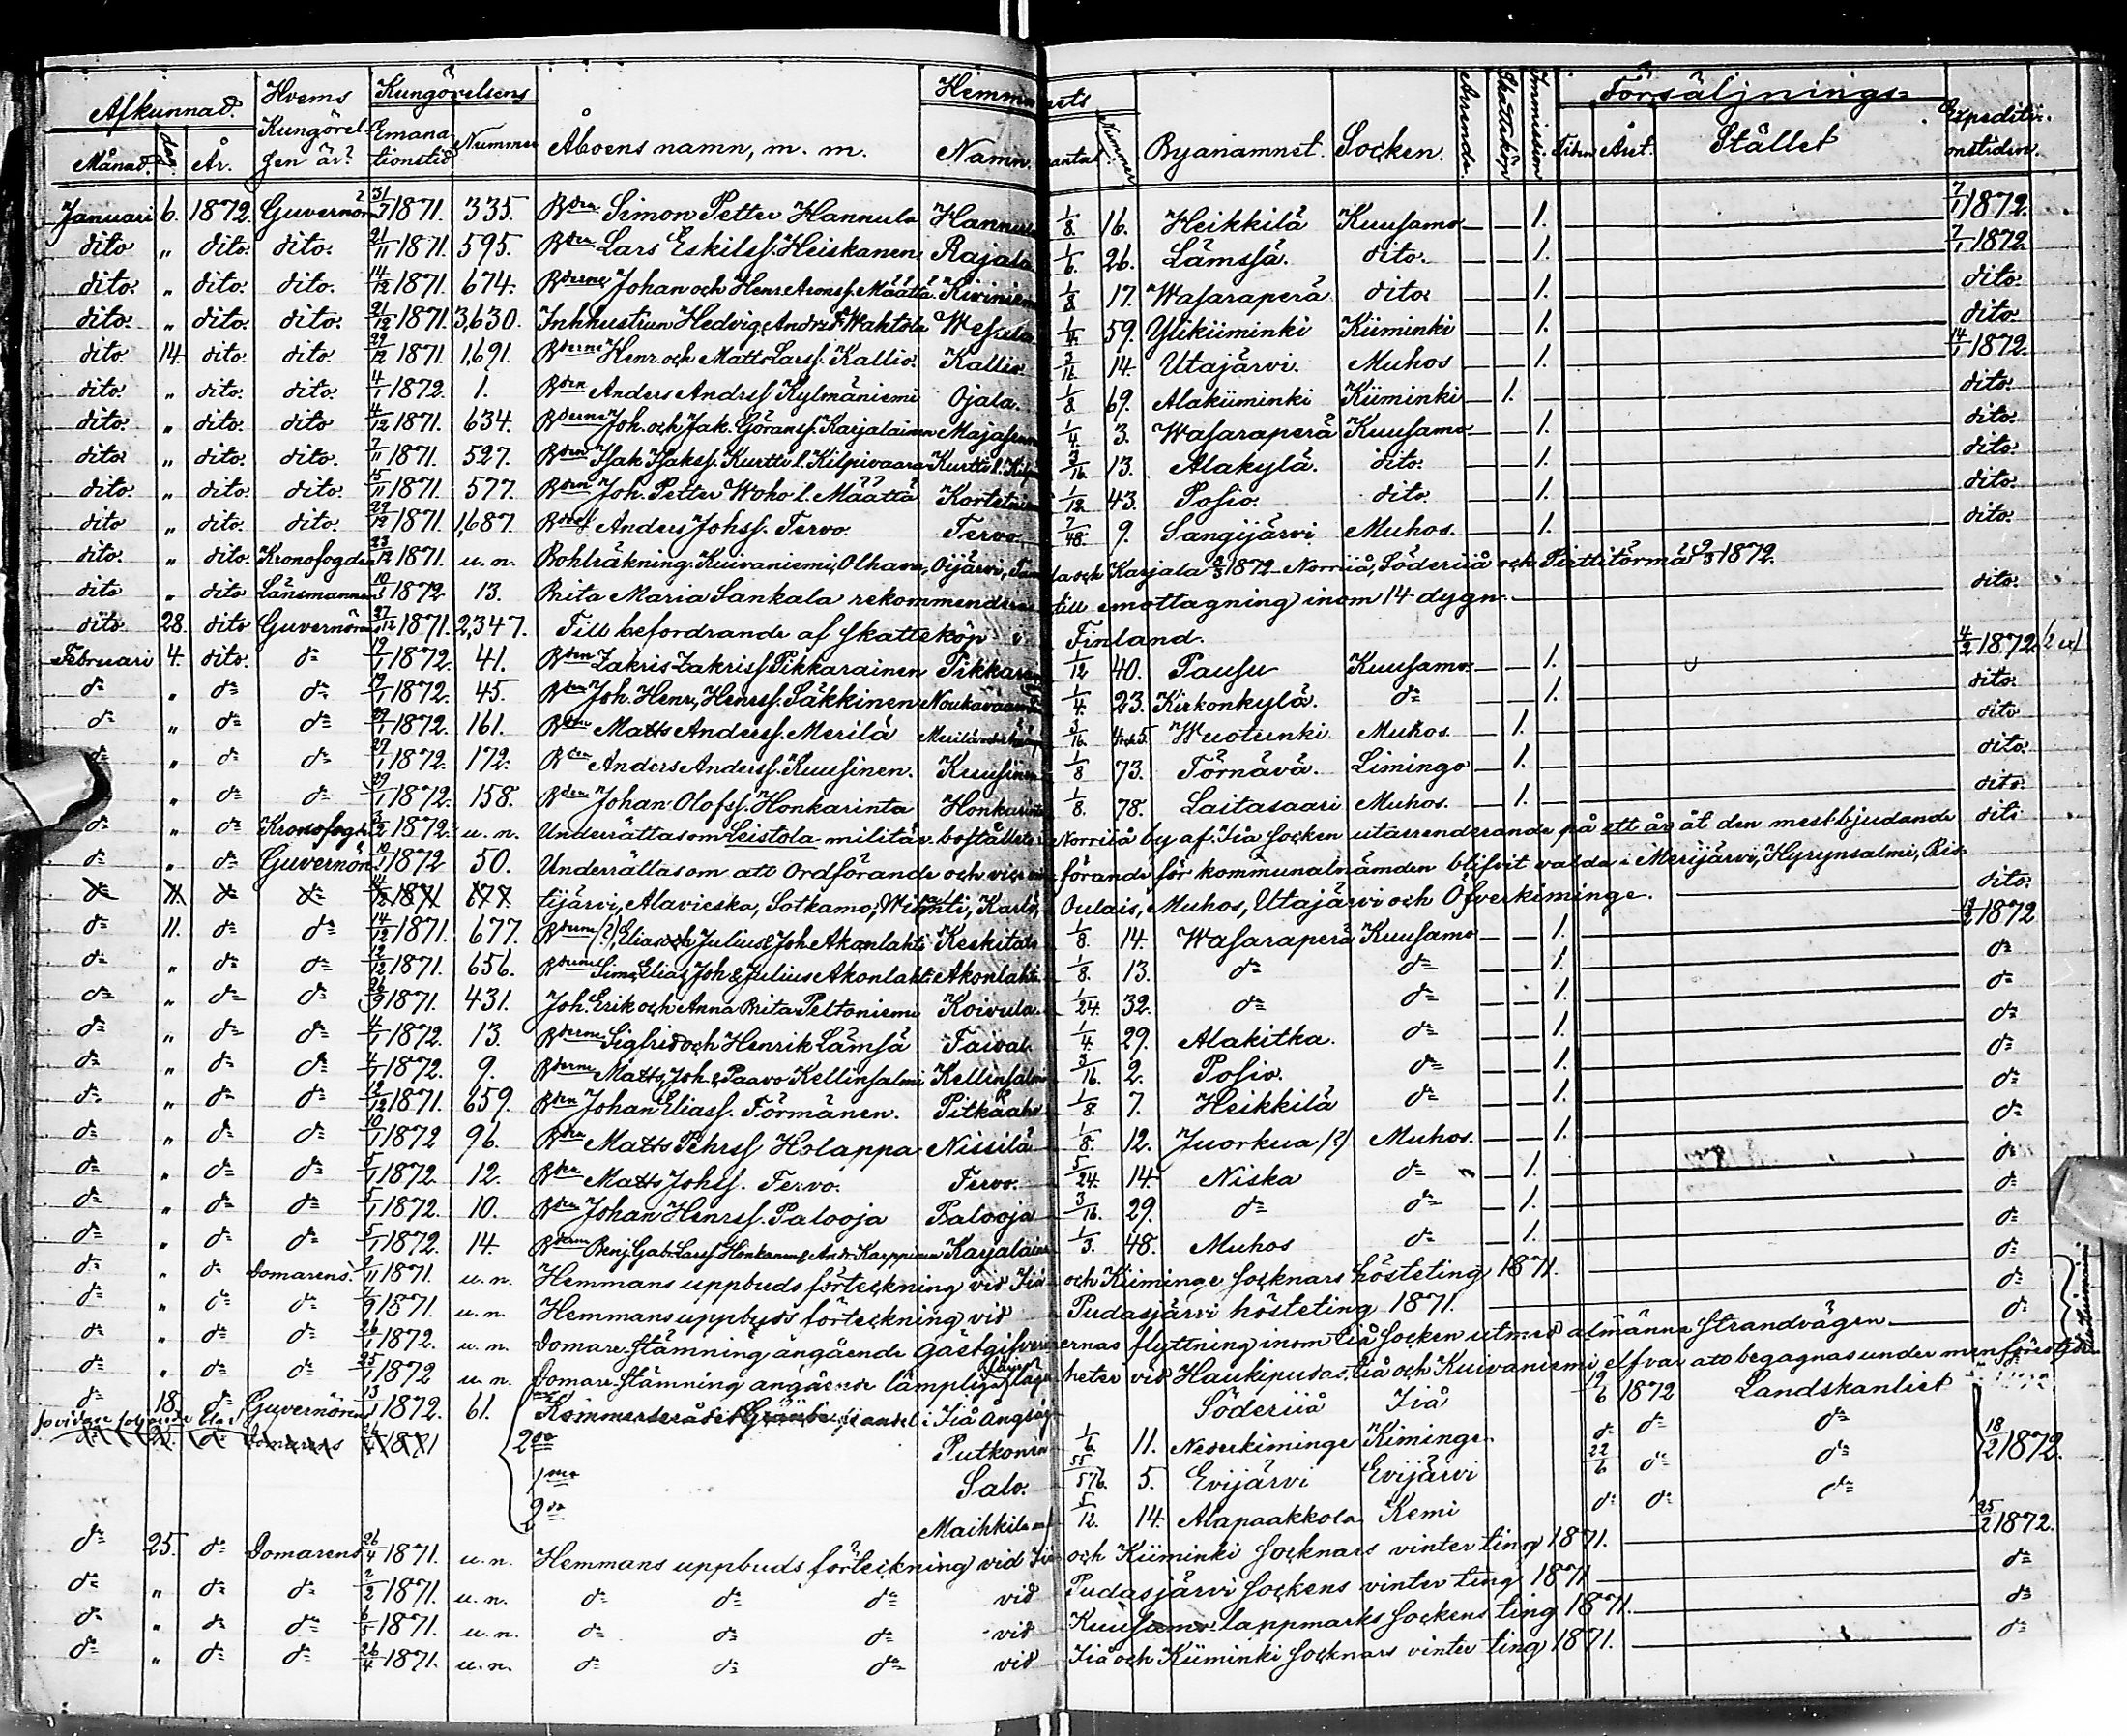 Afkunnad. Hvems Kungörelsens Hemmanets Försäljnings= Expediti-
Månad. dag År. Kungörel- Emana- Nummer Åboens namn, m. m. Namn. mantal. Nummer Byanamnet. Socken. Arrende. Skatteköp Immission Timm Året. Stället onstiden.
sen är? tionstid
Januari 6. 1872. Guvernörn 31/7 1871. 335. Bden Simon Petter Hannula Hannula 1/8 16. Heikkilä Kuusamo 1. 7/1 1872.
dito " dito. dito. 21/11 1871. 595. Bden Lars Eskilsf. Heiskanen Rajala 1/6. 26. Lämssä. dito. 1. 7/1 1872
dito. " dito. dito. 14/12 1871. 674. Bderne Johan och Henr Aronsf. Määttä. Kiviniemi 1/8 17. Wasaraperä dito. 1. dito.
dito. " dito. dito. 21/12 1871. 3,630. Inhkustrun Hedvig Andrsdr Wahtola Wesala 59. Ylikiiminki Kiiminki 1. dito.
dito 14. dito. dito. 29/12 1871. 1,691. Bderne Henr. och Matts Larsf. Kallio. Kallio. 3/16 14. Utajärvi. Muhos 1. 14/1 1872.
dito. " dito. dito. 4/1 1872. 1. Bden Anders Andrsf Kylmäniemi Ojala. 1/8 69. Alakiiminki Kiiminki 1. dito.
dito. " dito. dito 4/12 1871. 634. Bderne Joh. och Jak. Göransf. Karjalainen Majasuan 1/4. 3. Wasaraperä Kuusamo 1. dito.
dito. " dito. dito. 7/11 1871. 527. Bden Isak Isaksf. Kurtti l. Kilpivaara Kurtti l. Kilp 3/16. 13. Alakylä. dito. 1. dito.
dito. " dito. dito. 15/11 1871. 577. Bden Joh. Petter Woho l. Määttä Kortetn 1/12 43. Posio. dito. 1. dito.
dito " dito. dito. 29/12 1871. 1,687. Bden Anders Johsf. Tervo. Tervo. 7/48. 9. Sangijärvi Muhos. 1. dito.
dito. " dito. Kronofogden 23/12 1871. u. n. Bohlräkning. Kuivaniemi, Olhava, Oijärvi, Tannila och Karjala 1872 Norriiå, Söderiiå och Pirttitörmä 1872.
dito " dito Länsmannen 10/1 1872 13. Brita Maria Sankala rekommenderas till emottagning inom 14 dygn. dito.
dito 28. dito Guvernörns 27/12 1871. 2,347. Till befordrande af skatteköp i Finland.
Februari 4. dito. d:o 19/1 1872. 41. Bden Zakris Zakrisf Pikkarainen Pikkarain 1/12 40. Pausu Kuusamo. 1. 4/2 1872.
d:o " d:o d:o 19/1 1872. 45. Bden Joh. Henr. Henrsf. Säkkinen Noukavaara 1/4. 23. Kirkonkylä. d:o 1. dito.
d:o " d:o d:o 29/1 1872. 161. Bden Matts Andersf. Merilä Merilä 3/16. 4 och 5. Wuotunki Muhos 1. dito
d:o " d:o d:o 29/1 1872. 172. Bden Anders Andersf. Kuusinen. Kuusinen 1/8 73. Törnävä. Limingo 1. dito.
" d:o d:o 29/1 1872. 158. Bden Johan Olofsf. Honkarinta Honkarinta 1/8. 78. Laitasaari Muhos. 1. dito.
d:o " d:o Kronofogd. 1872. u. n. Underrättas om Leistola militär-boställets i Norriiå by af Iiå socken utarrenderande på ett år åt den mestbjudande dito
d:o " d:o Guvernörn. 10/1 1872 50. Underrättas om att Ordförande och vice ordförande för kommunalnämden blifvit valda i Merijärvi, Hyrynsalmi, Ris-
tijärvi, Alavieska, Sotkamo, Wihanti, Karlö, Oulais, Muhos, Utajärvi och Öfverkiminge. dito.
d:o 11. d:o d:o 14/12 1871. 677. Bderne (?), Elias och Julius & Joh Akonlahti Keskitalo 1/8. 14. Wasaraperä Kuusamo 1. 13/2 1872
d:o " d:o d:o 12/12 1871. 656. Bderne Sim, Elias, Joh & Julius Akonlahti Akonlahti 1/8. 13. d:o d:o 1. d:o
d:o " d:o d:o 26/9 1871. 431. Joh. Erik och Anna Brita Peltoniemi Koivula 1/24. 32. d:o d:o 1. d:o
d:o " d:o d:o 4/1 1872. 13. Bderne Sigfrid och Henrik Lämsä Taival 1/4. 29. Alakitka. d:o 1. d:o
d:o " d:o d:o 4/1 1872. 9. Bderne Matts, Joh. & Paavo Kellinsalmi Kellinsalmi 3/16. 2. Posio. d:o 1. d:o
d:o " d:o d:o 12/12 1871. 659. Bden Johan Eliasf. Törmänen. Pitkäaho 1/8. 7. Heikkilä d:o 1. d:o
d:o " d:o d:o 10/1 1872 96. Bden Matts Pehrsf Holappa Nissilä 1/8. 12. Juorkua (?) Muhos. 1. d:o
d:o " d:o d:o 5/1 1872. 12. Bden Matts Johsf. Tervo. Tervo. 5/24. 14. Niska d:o 1. d:o
d:o " d:o d:o 5/1 1872. 10. Bden Johan Henrsf. Palooja Palooja 3/16. 29. d:o d:o 1. d:o
d:o " d:o d:o 5/1 1872. 14. Bderne Benj. Gab. Larsf Honkanen & Andr. Karppinen Karjalain 1/3. 48. Muhos d:o 1. d:o
d:o " d:o Domarens. 1871. u. n. Hemmans uppbuds förteckning vid Iiå och Kiiminge socknars hösteting 1871. d:o
d:o " d:o d:o 7/9 1871. u. n. Hemmans uppbuds förteckning vid Pudasjärvi hösteting 1871. d:o
d:o " d:o d:o 26/1 1872. u. n. Domare Stämning angående Gästgifverernas flyttning inom Iiå socken utmed almänna strandvägen d:o
d:o " d:o d:o 25/1 1872 u. n. Domare Stämning angående lämpliga färje lägenheter vid Haukipudas, Iiå och Kuivaniemi elfvar att begagnas under menförestiden
d:o 18. d:o Guvernörens 13/1 1872. 61. Kommerserådet andel i Iiå Ångsåg Söderiiå Iiå 19/6 1872 Landskanliet
so vidare följande blad
2do Putkonen 1/6. 11. Nederkiminge Kiminge. d:o d:o d:o 18/2 1872.
1mo Salo. 55/576. 5. Evijärvi Evijärvi 22/6 d:o d:o
2do Maihkila 5/12. 14. Alapaakkola Kemi d:o d:o d:o
d:o 25. d:o Domarens 26/4 1871. u. n. Hemmans uppbuds förteckning vid Iiå och Kiiminki socknars vinter ting 1871. 25/2 1872.
d:o " d:o d:o 2/2 1871. u. n. d:o d:o d:o vid Pudasjärvi sockens vinter ting 1871 d:o
d:o " d:o d:o 6/5 1871. u. n. d:o d:o d:o vid Kuusamo lappmarks sockens ting 1871. d:o
d:o " d:o d:o 26/4 1871. u. n. d:o d:o d:o vid Iiå och Kiiminki socknars vinter ting 1871. d:o